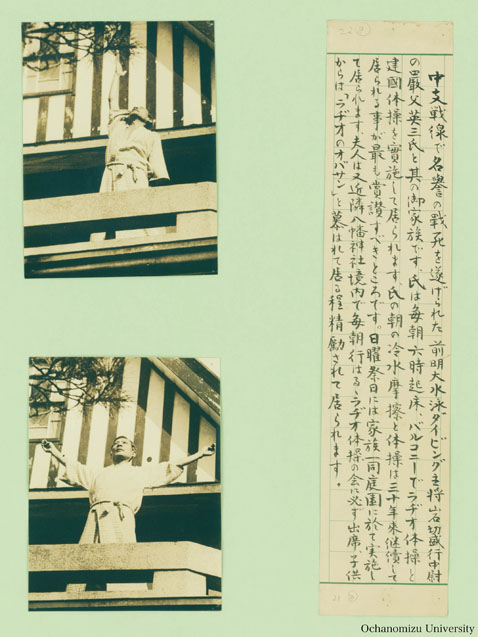 中支戦線で名誉の戦死を遂げられた前明大水泳ダイビング主将山石切盛行中尉
の嚴父英三氏と其の御家族です。氏は毎朝六時起床、バルコニーでラヂオ体操と
建國体操を實施して居られます。氏の朝の冷水摩擦と体操は三十年来継續して
居られる事が最も賞讃すべきところです。日曜祭日には家族一同庭園に於て実施し
て居られます。夫人は又近隣八幡神社境内で毎朝行はるゝラヂオ体操の会に必ず出席、子供
からは「ラヂオのオバサン」と慕はれて居る程精勵されて居られます。
Ochanomizu University